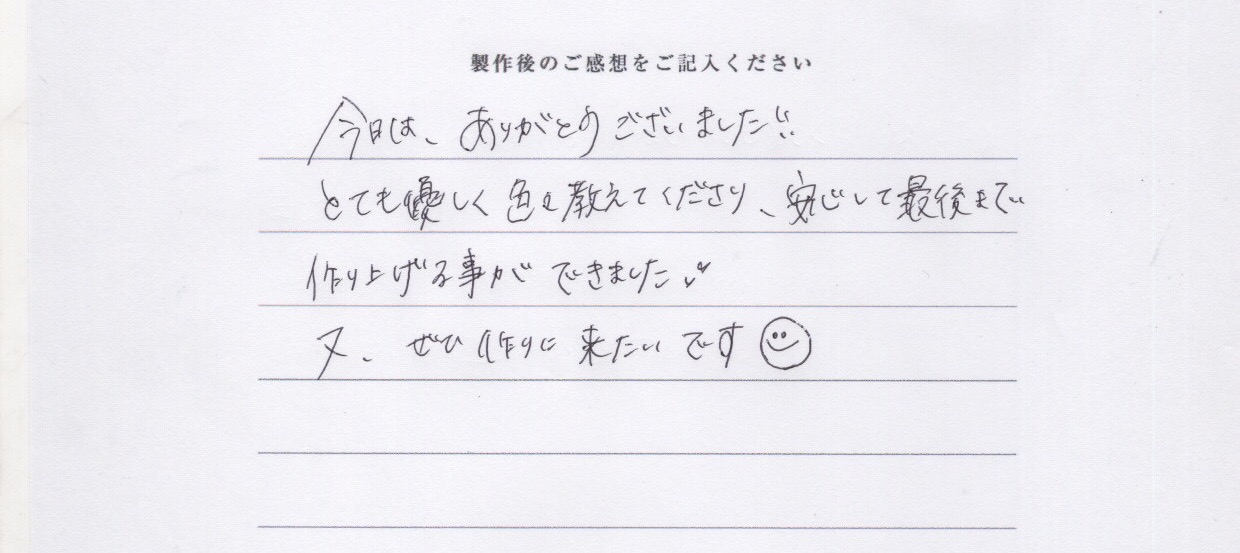 製作後のご感想をご記入ください
今日は、ありがとうございました!!
とても優しく色々教えてくださり、安心して最後まで
作り上げる事ができました♪
又、ぜひ作りに来たいです